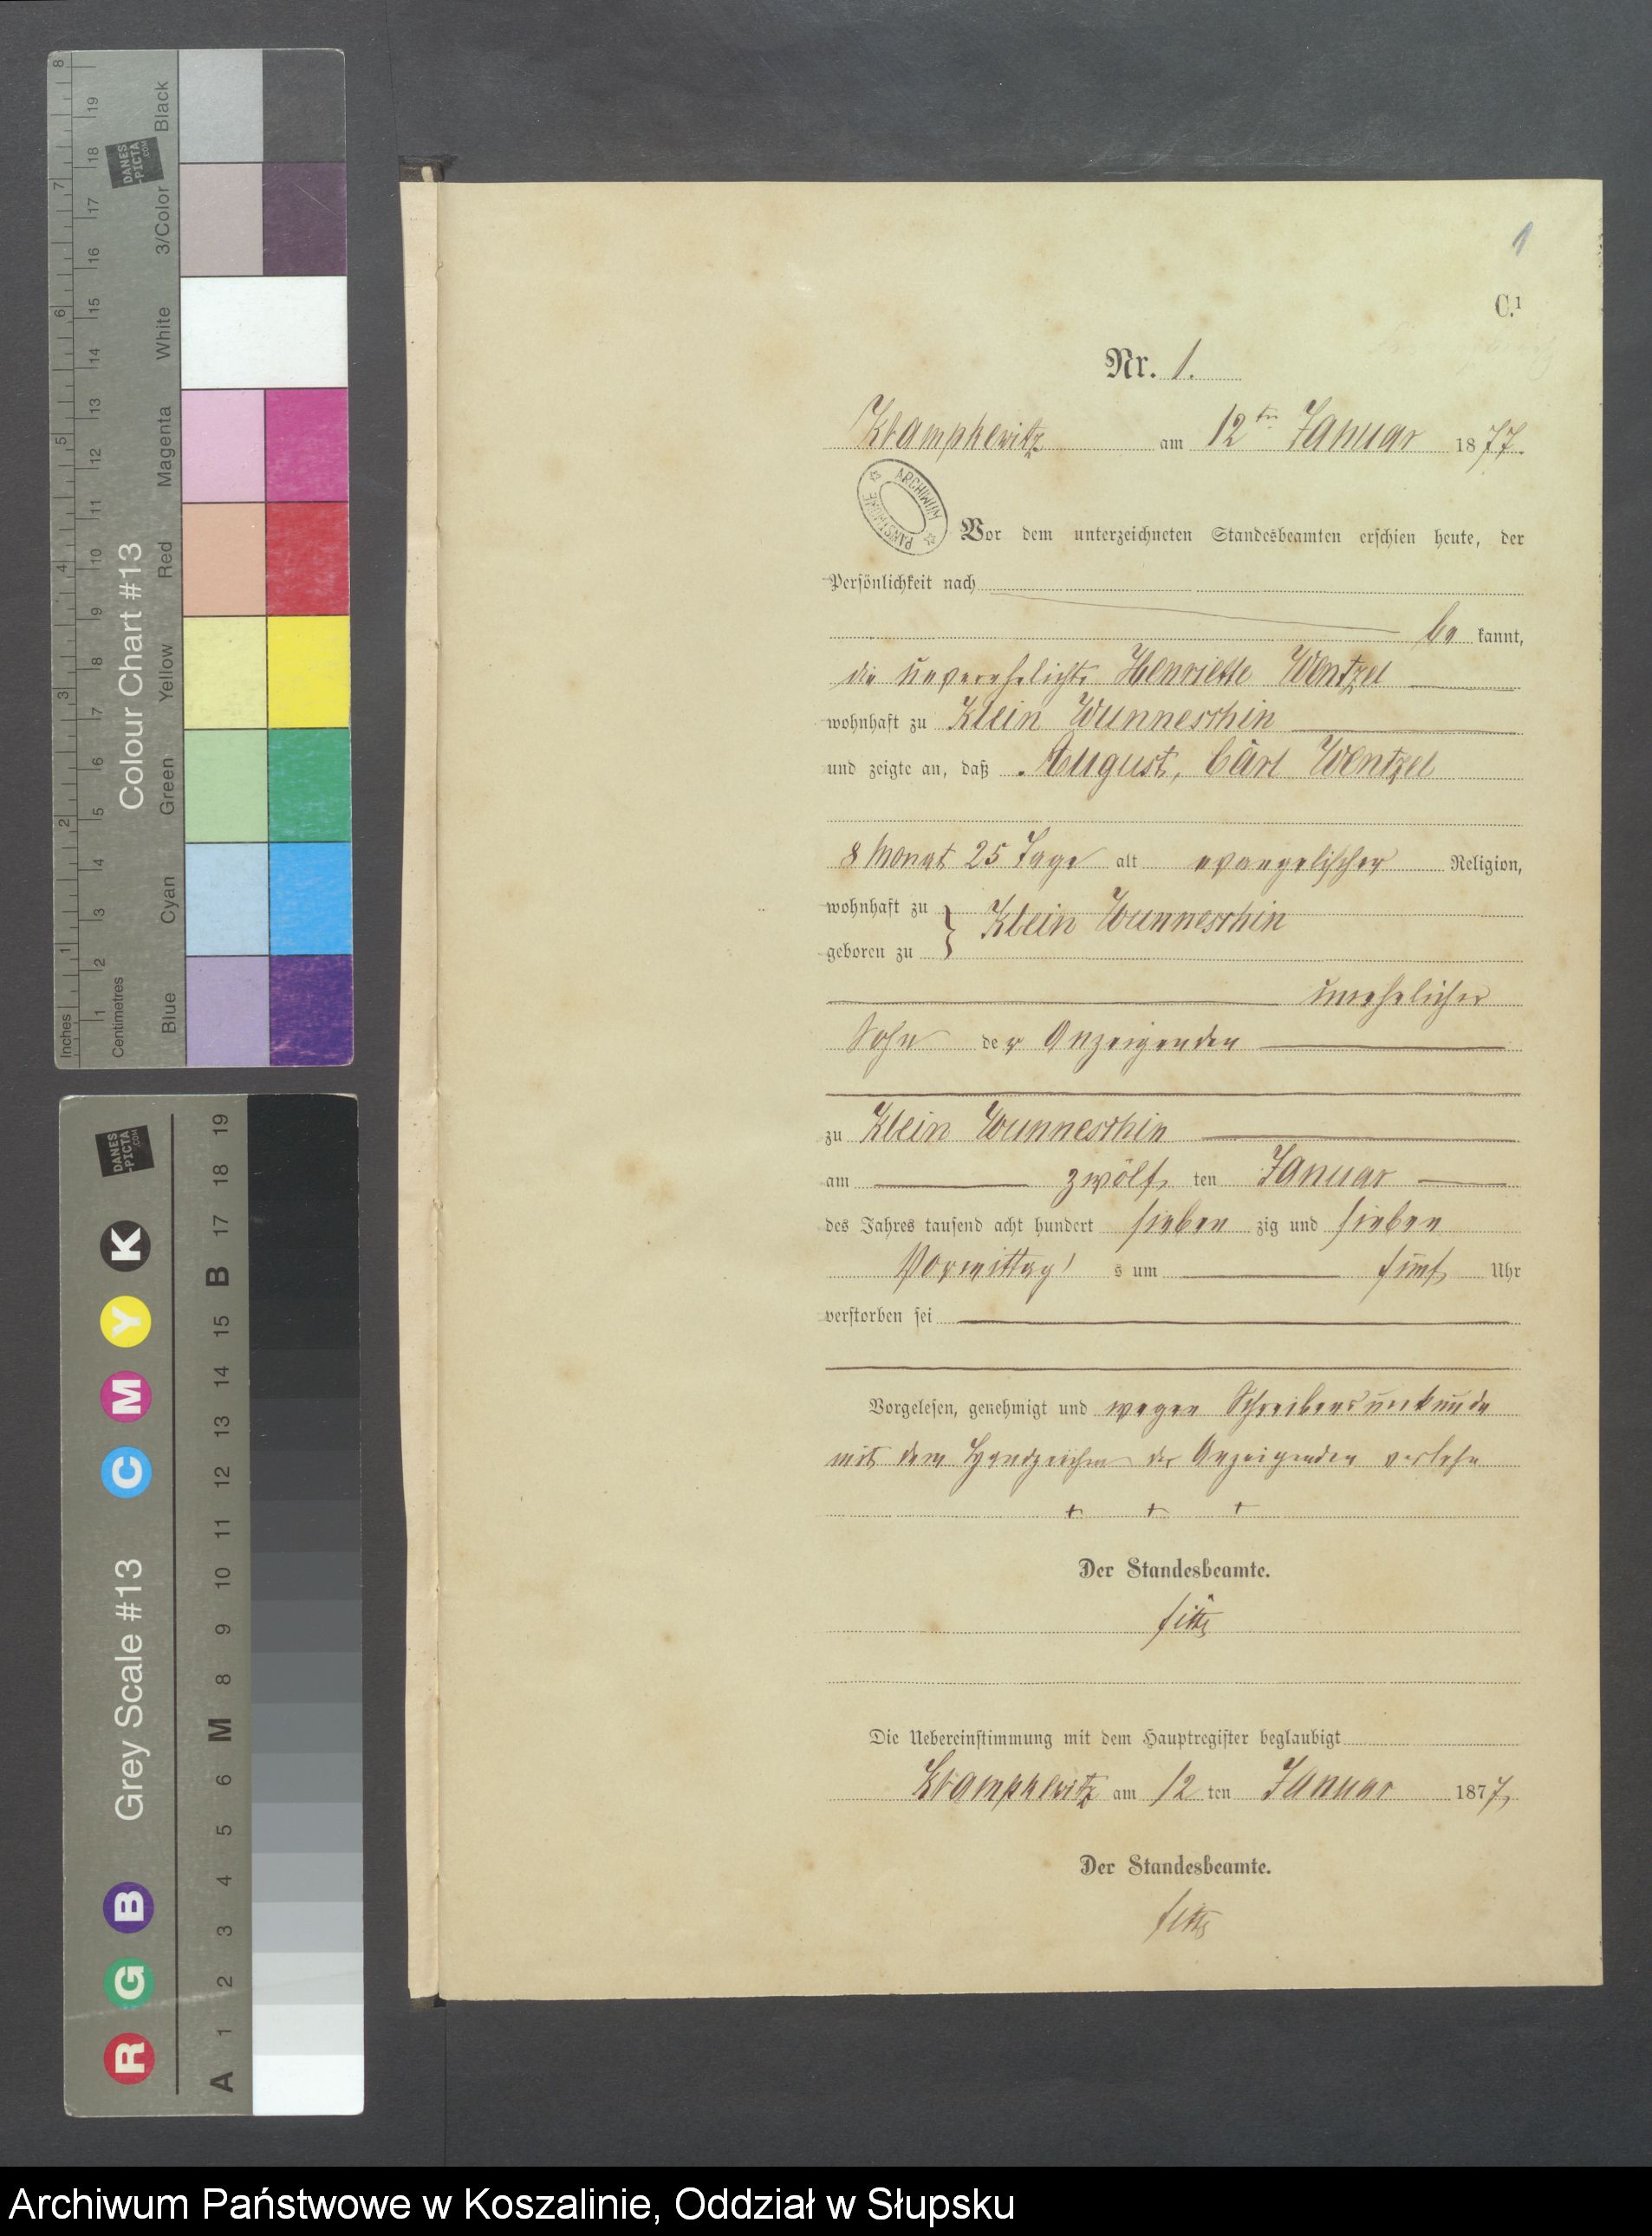 1
C.¹
Nr. 1.
Krampkewitz am 12ten Januar 1877.
ARCHIWUM PAŃSTWOWE
Vor dem unterzeichneten Standesbeamten erschien heute, der
Persönlichkeit nach
be kannt,
die unverehelichte Henriette Wentzel
wohnhaft zu Klein Wunneschin
und zeigte an, daß August, Carl Wentzel
8 Monat 25 Tage alt evangelischer Religion,
wohnhaft zu
geboren zu } Klein Wunneschin
unehelicher
Sohn der Anzeigenden
zu Klein Wunneschin
am zwölf ten Januar
des Jahres tausend acht hundert sieben zig und sieben
Vormittag s um fünf Uhr
verstorben sei
Vorgelesen, genehmigt und wegen Schreibensunkunde
mit dem Handzeichen der Anzeigenden versehn
+ + +
Der Standesbeamte.
Die Uebereinstimmung mit dem Hauptregister beglaubigt
Krampkewitz am 12 ten Januar 1877
Der Standesbeamte.
Colour Chart #13
Blue Cyan Green Yellow Red Magenta White 3/Color Black
Inches 1 2 3 4 5 6 7 8
Centimetres 1 2 3 4 5 6 7 8 9 10 11 12 13 14 15 16 17 18 19
DANES-PICTA.COM
Grey Scale #13
R G B C M Y K
A 1 2 3 4 5 6 M 8 9 10 11 12 13 14 15 B 17 18 19
DANES-PICTA.COM
Archiwum Państwowe w Koszalinie, Oddział w Słupsku